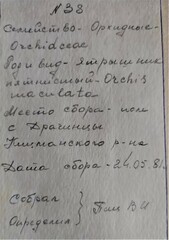 №38
Семейство- Орхидные-
Orchidceae
Род и вид- Ятрышник
пятнистый-Orchis
maculata
Место сбора- поле
с Драчинцы
Кицманского р-на
Дата сбора-24.05.81г.
Собрал
Определил } Тим В И